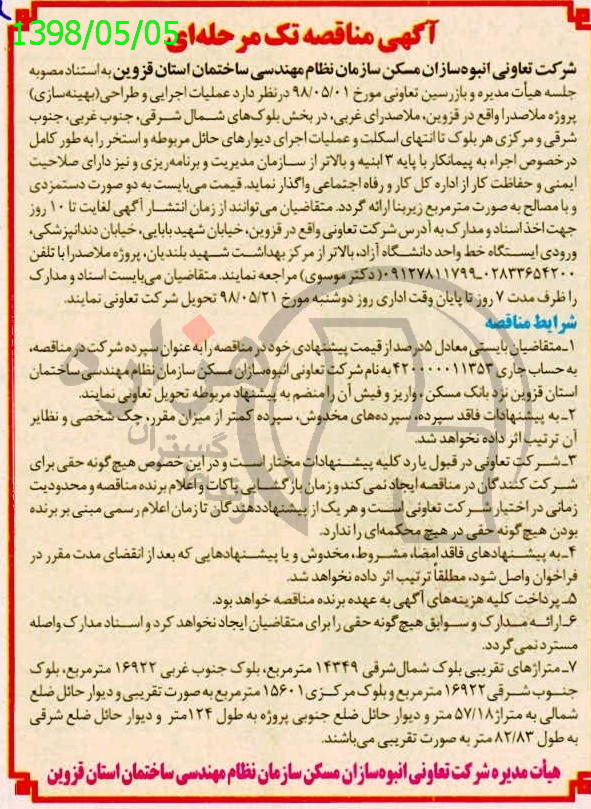 1398/05/05
آگهی مناقصه تک مرحله‌ای
شرکت تعاونی انبوه‌سازان مسکن سازمان نظام مهندسی ساختمان استان قزوین به استناد مصوبه
جلسه هیأت مدیره و بازرسین تعاونی مورخ ۹۸/۰۵/۰۱ در نظر دارد عملیات اجرایی و طراحی(بهینه‌سازی)
پروژه ملاصدرا واقع در قزوین، ملاصدرای غربی، در بخش بلوک‌های شمال شرقی، جنوب غربی، جنوب
شرقی و مرکزی هر بلوک تا انتهای اسکلت و عملیات اجرای دیوارهای حائل مربوطه و استخر را به طور کامل
در خصوص اجراء به پیمانکار با پایه ۳ ابنیه و بالاتر از سازمان مدیریت و برنامه‌ریزی و نیز دارای صلاحیت
ایمنی و حفاظت کار از اداره کل کار و رفاه اجتماعی واگذار نماید. قیمت می‌بایست به دو صورت دستمزدی
و با مصالح به صورت مترمربع زیربنا ارائه گردد. متقاضیان می‌توانند از زمان انتشار آگهی لغایت تا ۱۰ روز
جهت اخذ اسناد و مدارک به آدرس شرکت تعاونی واقع در قزوین، خیابان شهید بابایی، خیابان دندانپزشکی،
ورودی ایستگاه خط واحد دانشگاه آزاد، بالاتر از مرکز بهداشت شهید بلندیان، پروژه ملاصدرا با تلفن
۰۲۸۳۳۶۵۴۲۰۰ـ۰۹۱۲۷۸۱۱۷۹۹( دکتر موسوی) مراجعه نمایند. متقاضیان می‌بایست اسناد و مدارک
را ظرف مدت ۷ روز تا پایان وقت اداری روز دوشنبه مورخ ۹۸/۰۵/۲۱ تحویل شرکت تعاونی نمایند.
شرایط مناقصه
۱ـ متقاضیان بایستی معادل ۵درصد از قیمت پیشنهادی خود در مناقصه را به عنوان سپرده شرکت در مناقصه،
به حساب جاری ۴۲۰۰۰۰۰۱۱۳۵۳ به نام شرکت تعاونی انبوه‌سازان مسکن سازمان نظام مهندسی ساختمان
استان قزوین نزد بانک مسکن ، واریز و فیش آن را منضم به پیشنهاد مربوطه تحویل تعاونی نمایند.
۲ـ به پیشنهادات فاقد سپرده، سپرده‌های مخدوش، سپرده کمتر از میزان مقرر، چک شخصی و نظایر
آن ترتیب اثر داده نخواهد شد.
۳ـ شرکت تعاونی در قبول یا رد کلیه پیشنهادات مختار است و در این خصوص هیچ گونه حقی برای
شرکت کنندگان در مناقصه ایجاد نمی کند و زمان بازگشایی پاکات و اعلام برنده مناقصه و محدودیت
زمانی در اختیار شرکت تعاونی است و هر یک از پیشنهاددهندگان تا زمان اعلام رسمی مبنی بر برنده
بودن هیچ گونه حقی در هیچ محکمه‌ای را ندارد.
۴ـ به پیشنهادهای فاقد امضا، مشروط، مخدوش و یا پیشنهادهایی که بعد از انقضای مدت مقرر در
فراخوان واصل شود، مطلقاً ترتیب اثر داده نخواهد شد.
۵ـ پرداخت کلیه هزینه‌های آگهی به عهده برنده مناقصه خواهد بود.
۶ـ ارائه مدارک و سوابق هیچ گونه حقی را برای متقاضیان ایجاد نخواهد کرد و اسناد مدارک واصله
مسترد نمی گردد.
۷ـ متراژهای تقریبی بلوک شمال شرقی ۱۴۳۴۹ مترمربع، بلوک جنوب غربی ۱۶۹۲۲ مترمربع، بلوک
جنوب شرقی ۱۶۹۲۲ مترمربع و بلوک مرکزی ۱۵۶۰۱ مترمربع به صورت تقریبی و دیوار حائل ضلع
شمالی به متراژ ۵۷/۱۸ متر و دیوار حائل ضلع جنوبی پروژه به طول ۱۲۴متر و دیوار حائل ضلع شرقی
به طول ۸۲/۸۳ متر به صورت تقریبی می‌باشند.
هیأت مدیره شرکت تعاونی انبوه‌سازان مسکن سازمان نظام مهندسی ساختمان استان قزوین